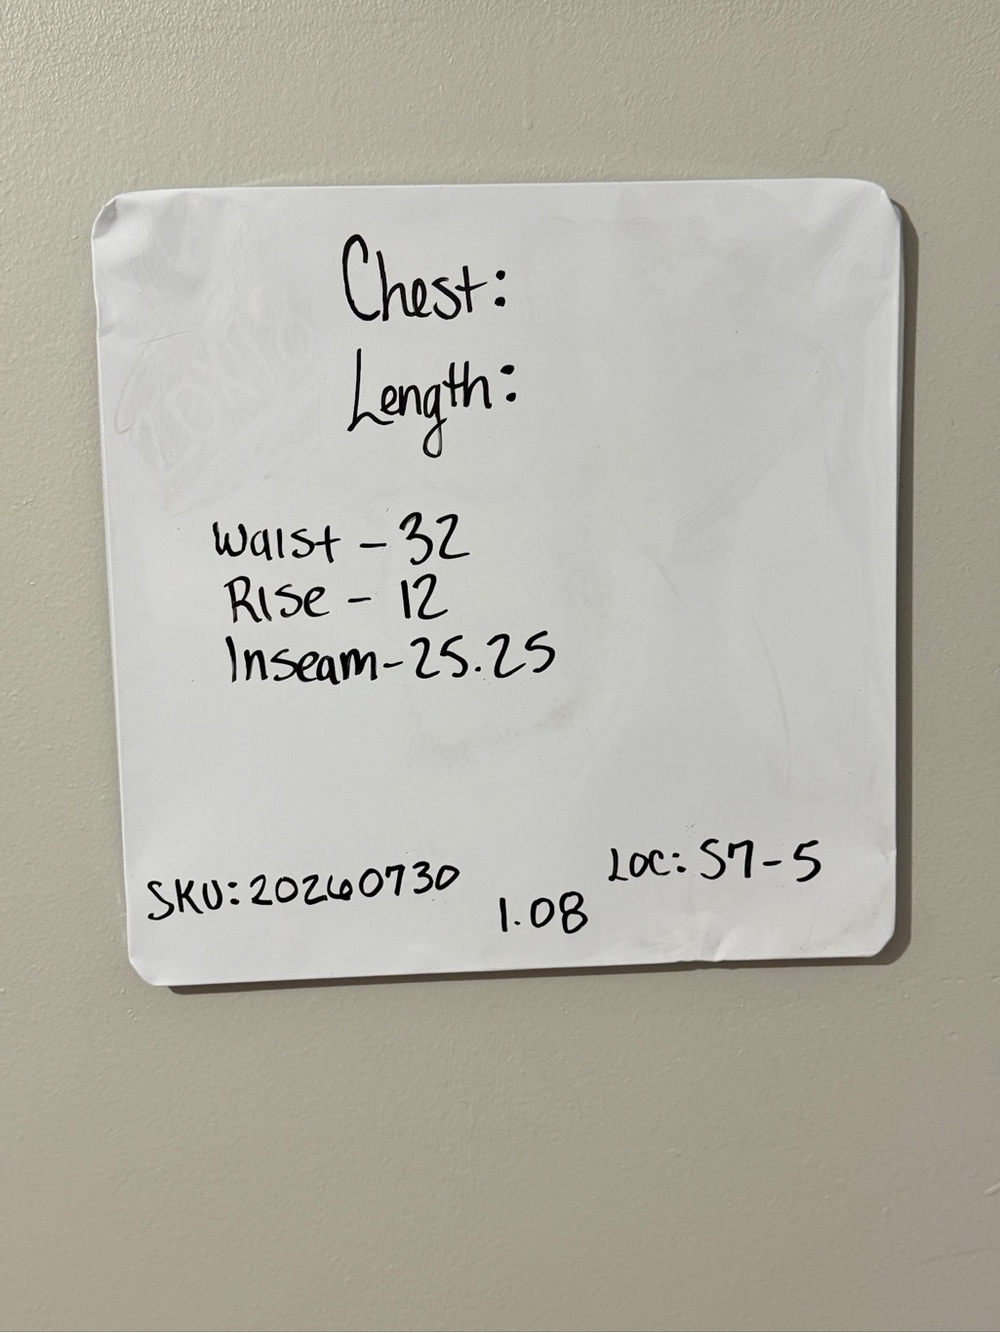 Chest:
Length:
Waist - 32
Rise - 12
Inseam-25.25
SKU: 20260730
LOC: S7-5
1.08